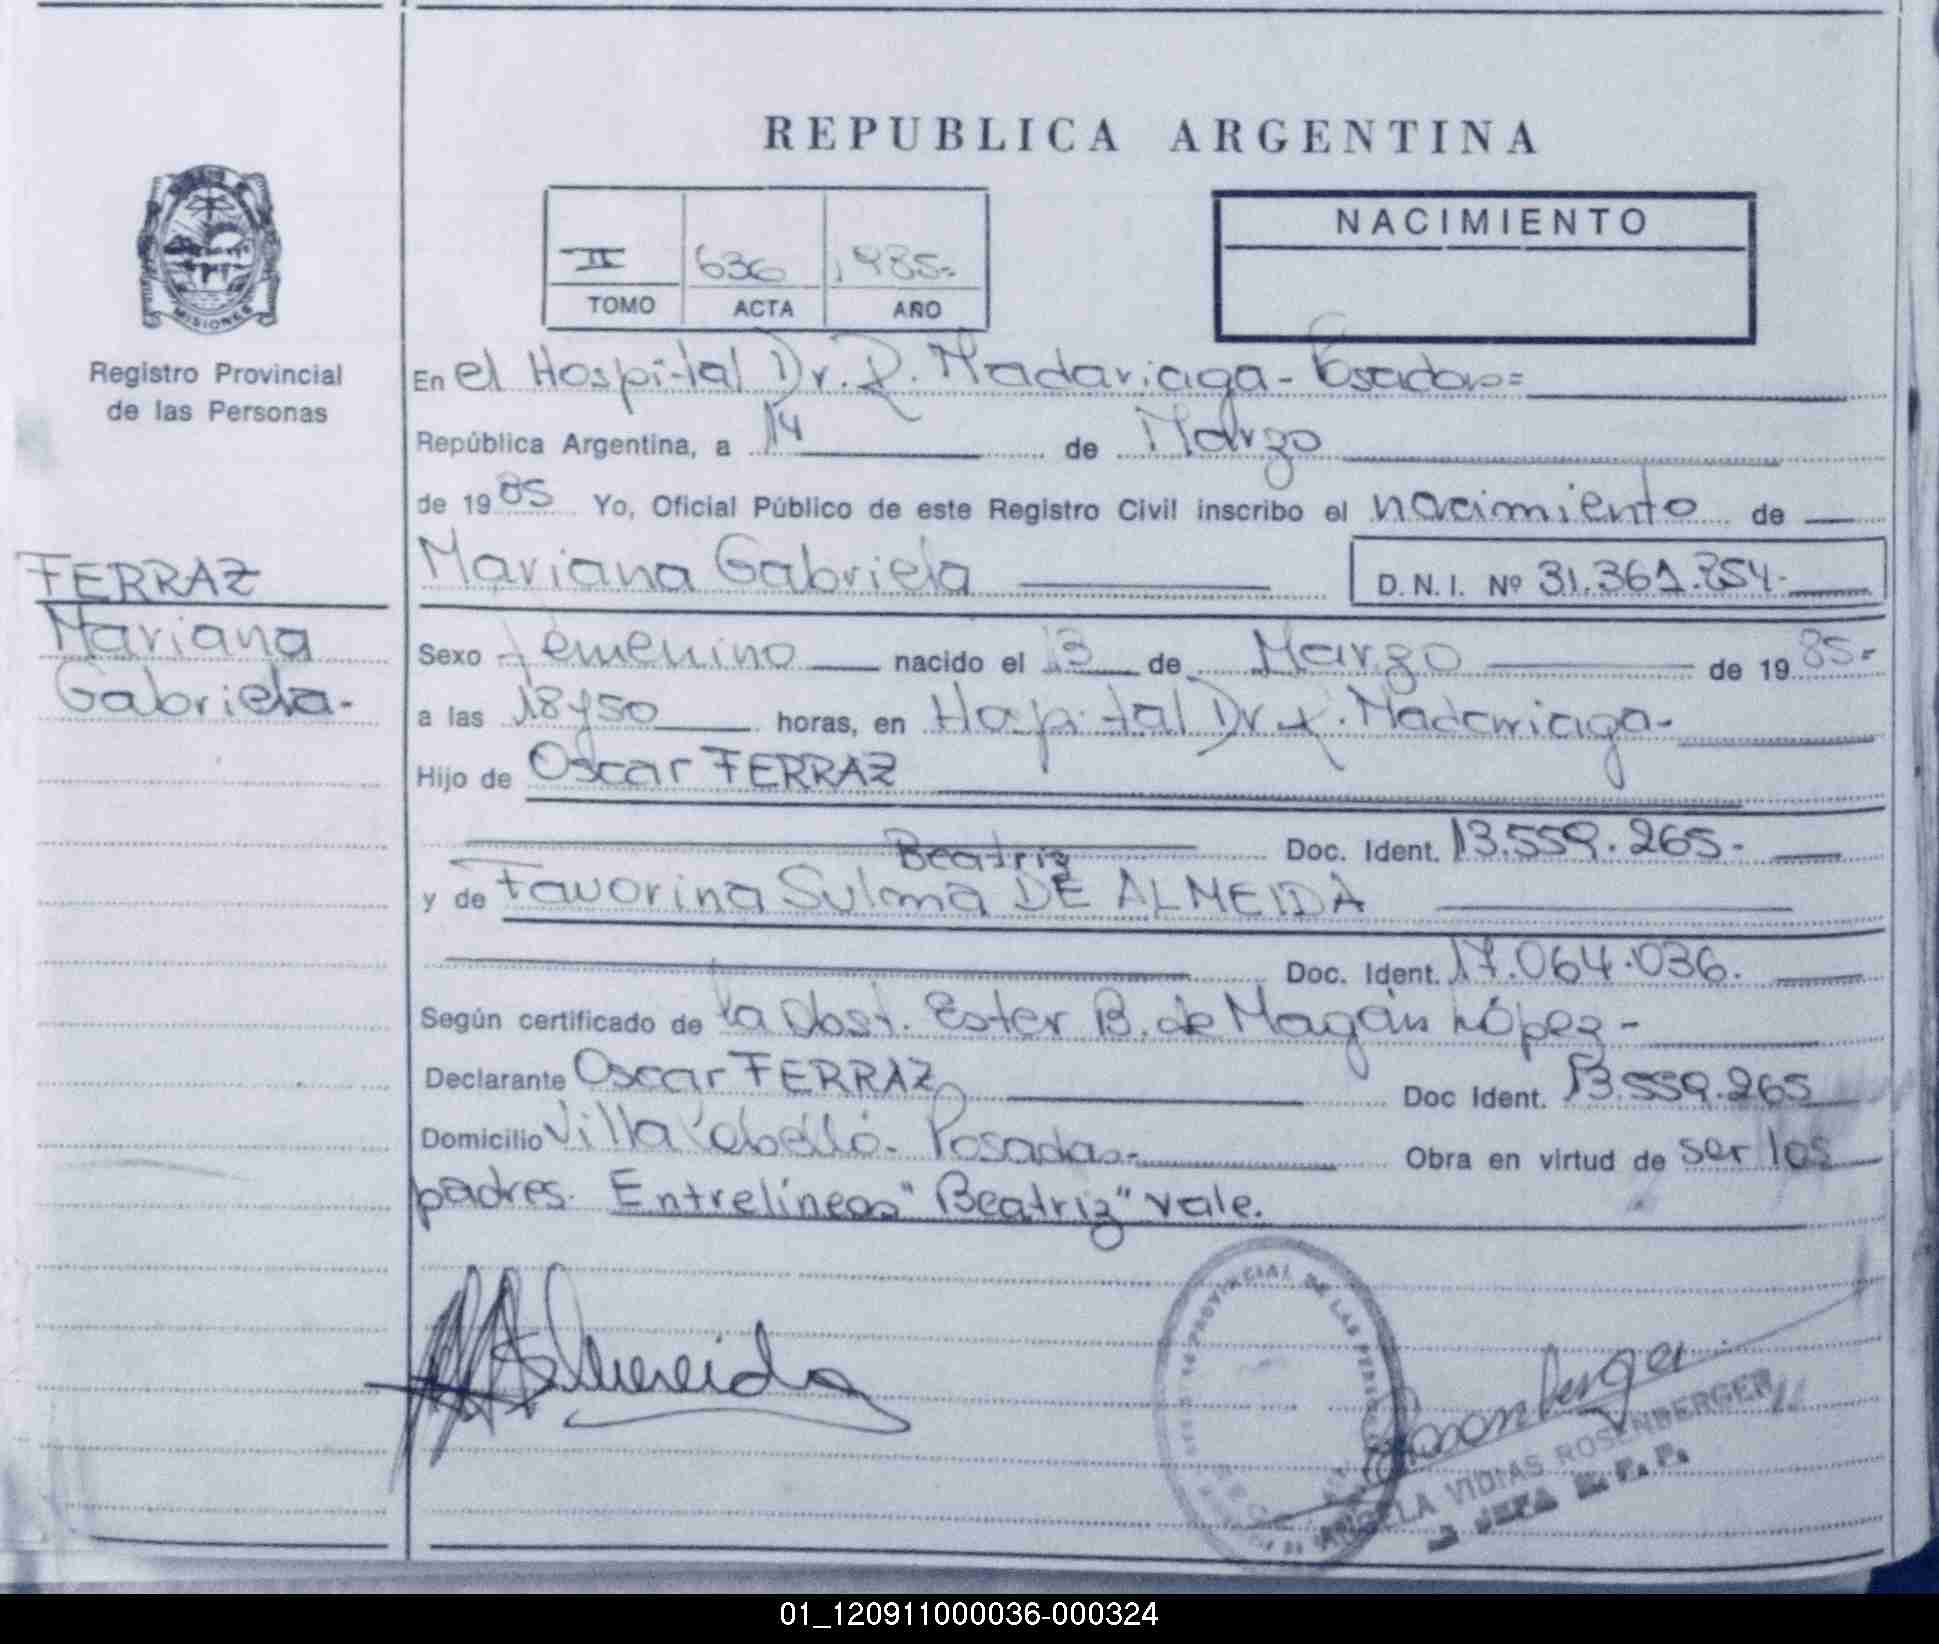 REPUBLICA ARGENTINA
NACIMIENTO
II 636 1985-
TOMO ACTA AÑO
MISIONES
Registro Provincial
de las Personas
En el Hospital Dr. R. Madariaga - Posadas=
República Argentina, a 14 de Marzo
de 1985 Yo, Oficial Público de este Registro Civil inscribo el nacimiento de
FERRAZ
Mariana
Gabriela-
Mariana Gabriela D.N.I. Nº 31.361.254-
Sexo femenino nacido el 13 de Marzo de 1985-
a las 18y50 horas, en Hospital Dr. R. Madariaga-
Hijo de Oscar FERRAZ
Doc. Ident. 13.559.265-
Beatriz
y de Favorina Sulma DE ALMEIDA
Doc. Ident. 17.064.036.
Según certificado de la Obst. Ester B. de Magán López -
Declarante Oscar FERRAZ Doc Ident. 13.559.265
Domicilio Villa Cabello- Posadas- Obra en virtud de ser los
padres. Entrelíneas "Beatriz" vale.
Almeida
PROVINCIAL DE LAS
Rosenberger
ANGELA VIDIAS ROSENBERGER
JEFA
01_120911000036-000324